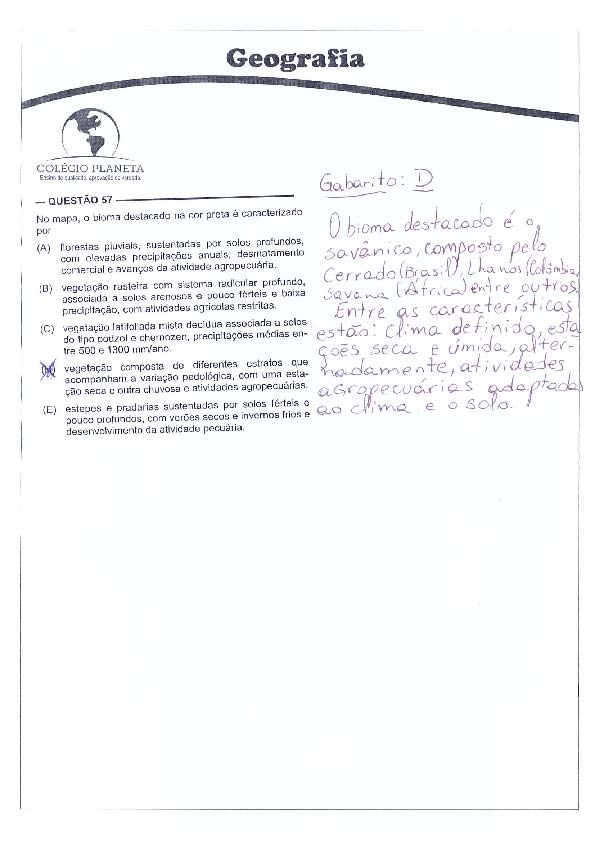 Geografia
COLÉGIO PLANETA
Ensino de qualidade, aprovação de verdade.
— QUESTÃO 57
No mapa, o bioma destacado na cor preta é caracterizado
por
(A) florestas pluviais, sustentadas por solos profundos,
com elevadas precipitações anuais, desmatamento
comercial e avanços da atividade agropecuária.
(B) vegetação rasteira com sistema radicular profundo,
associada a solos arenosos e pouco férteis e baixa
precipitação, com atividades agrícolas restritas.
(C) vegetação latifoliada mista decídua associada a solos
do tipo podzol e chernozen, precipitações médias en-
tre 500 e 1300 mm/ano.
(D) vegetação composta de diferentes estratos que
acompanham a variação pedológica, com uma esta-
ção seca e outra chuvosa e atividades agropecuárias.
(E) estepes e pradarias sustentadas por solos férteis e
pouco profundos, com verões secos e invernos frios e
desenvolvimento da atividade pecuária.
Gabarito: D
O bioma destacado é o
savânico, composto pelo
Cerrado (Brasil), Lhanos (Colômbia,
Savana (África) entre outros.
Entre as características
estão: Clima definido, esta
ções seca e úmida, alter-
nadamente, atividades
agropecuárias adaptadas
ao clima e o solo.